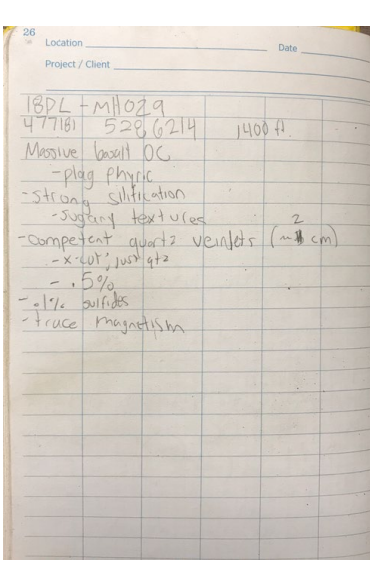 26
Location Date
Project / Client
18DL-MH029
477181 5286214 1400 ft
Massive basalt OC
-plag phyric
-strong silification
-sugary textures
-competent quartz veinlets (~2 cm)
-x-cut; just qtz
- .5%
-.1% sulfides
-trace magnetism